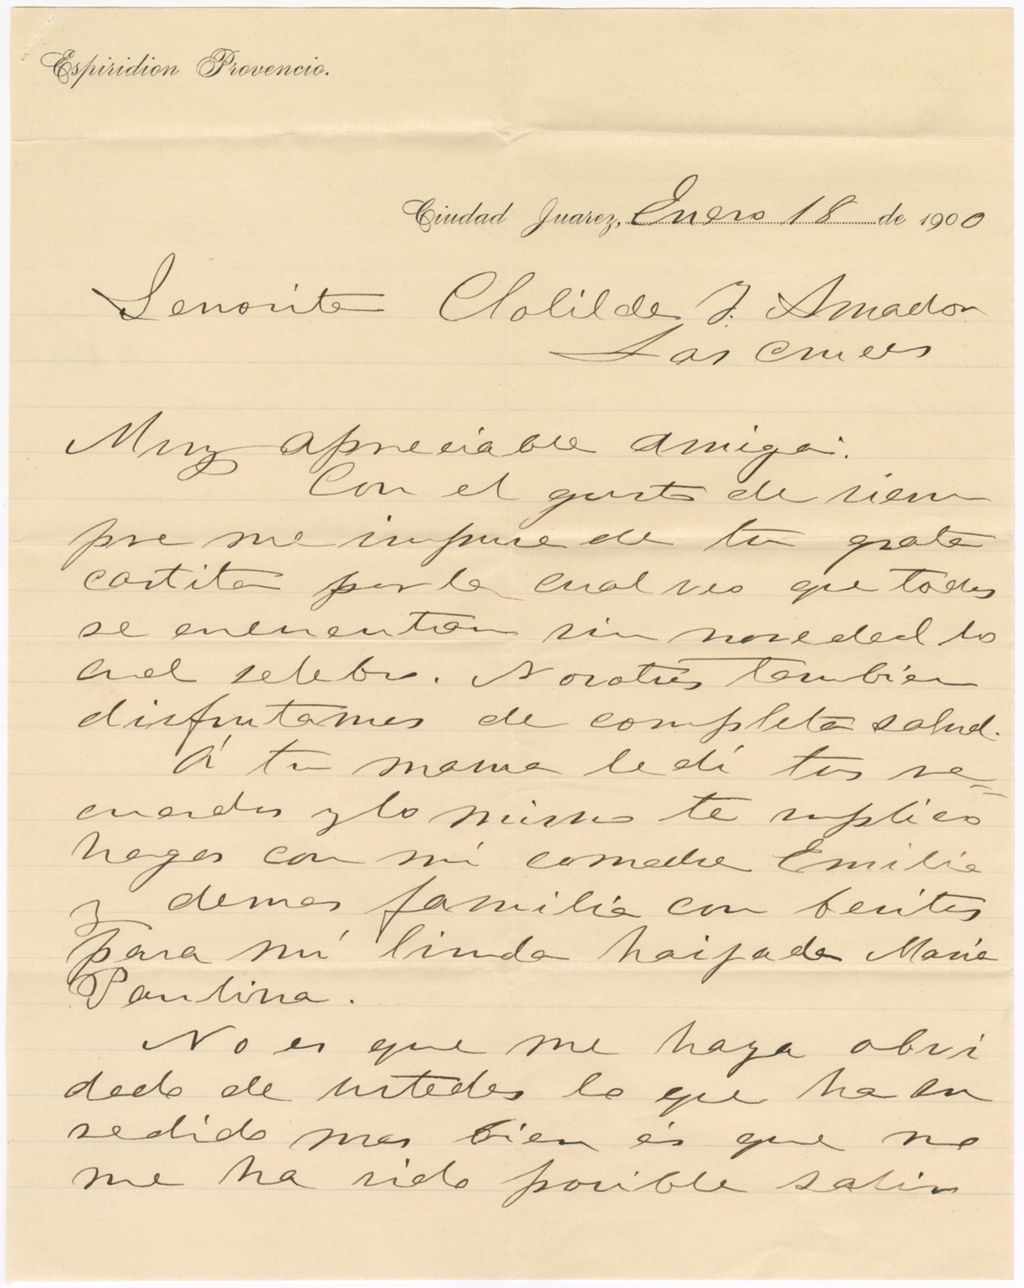 Espiridion Provencio.
Ciudad Juarez, Enero 18 de 1900
Senorita Clotilde J. Amador
Las Cruces
Muy apreciable amiga:
Con el gusto de siem
pre me impuse de tu grata
cartita por la cual veo que todos
se encuentran sin novedad lo
cual selebro. Nosotros tambien
disfrutamos de completa salud.
Á tu mama le dí tus re=
cuerdos y lo mismo te suplico
hagas con mi comadre Emilia
y demas familia con besitos
para mi linda haijada Maria
Paulina.
No es que me haya olvi
dado de ustedes lo que ha su
sedido mas bien és que no
me ha sido posible salir